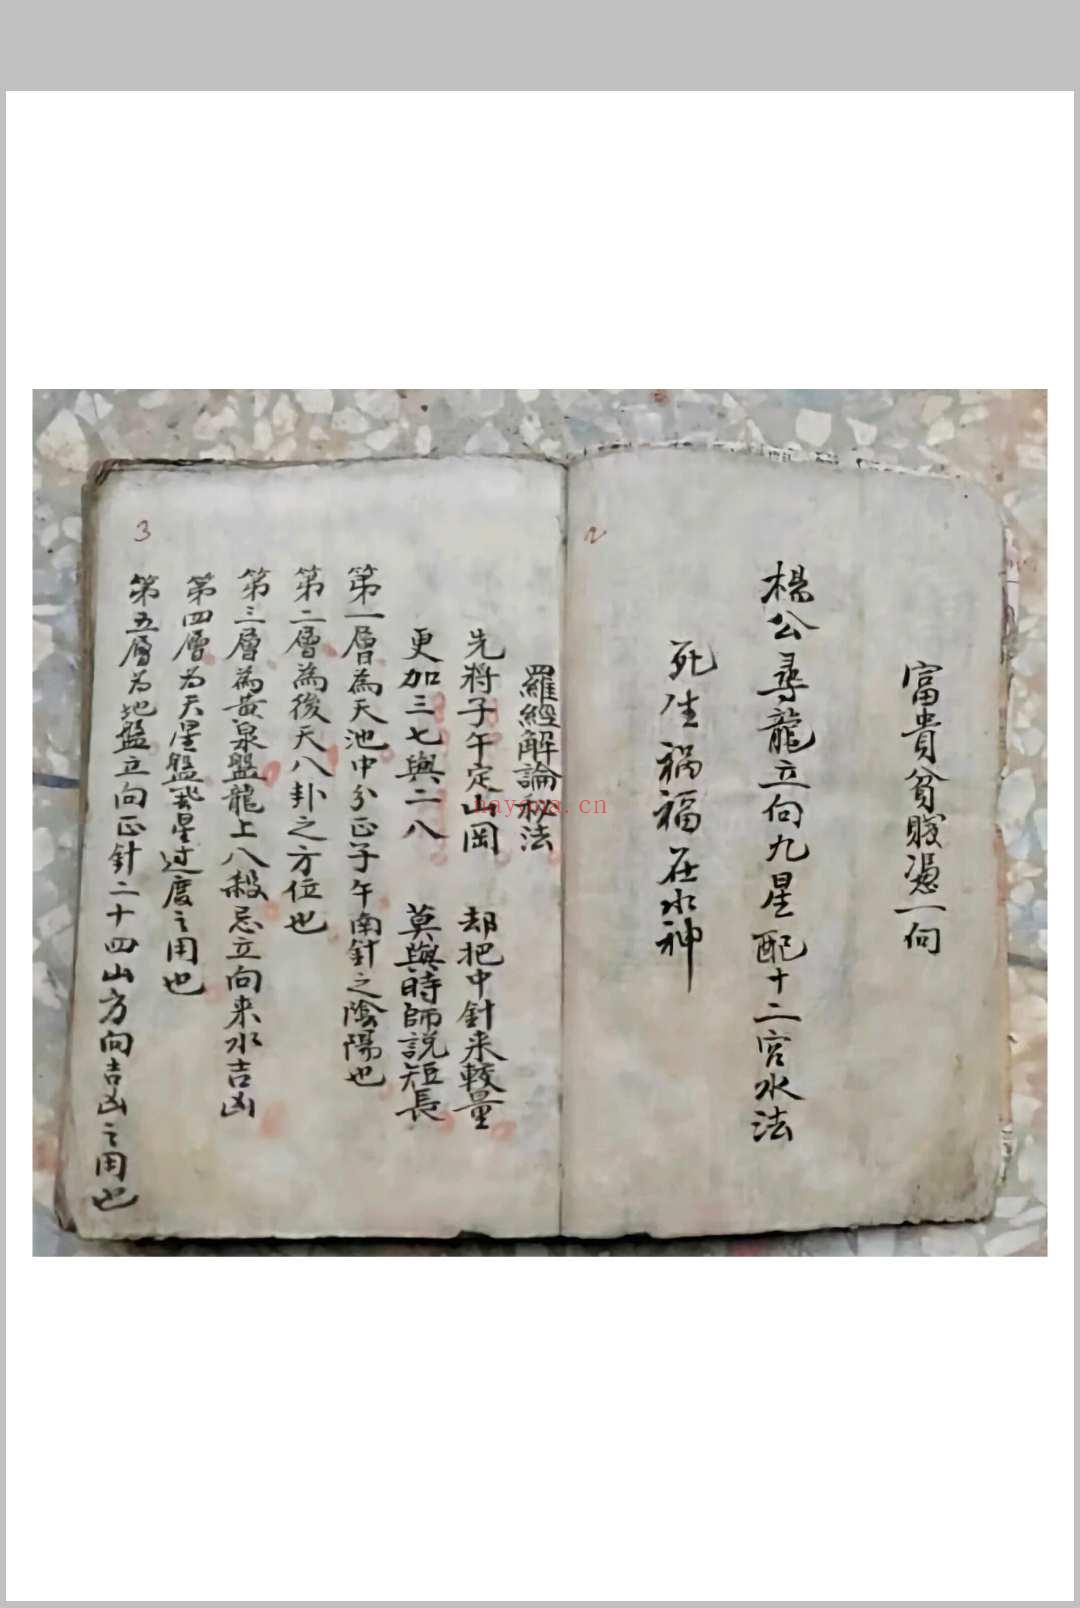 2
富貴貧賤憑一向
楊公尋龍立向九星配十二宮水法
死生禍福在水神
3
羅經解論秘法
先將子午定山岡 却把中針來較量
更加三七與二八 莫與時師說短長
第一層為天池中分正子午南針之陰陽也
第二層為後天八卦之方位也
第三層為黃泉盤龍上八殺忌立向来水吉凶
第四層为天星盤 星过度之用也
第五層为地盤立向正針二十四山方向吉凶之用也